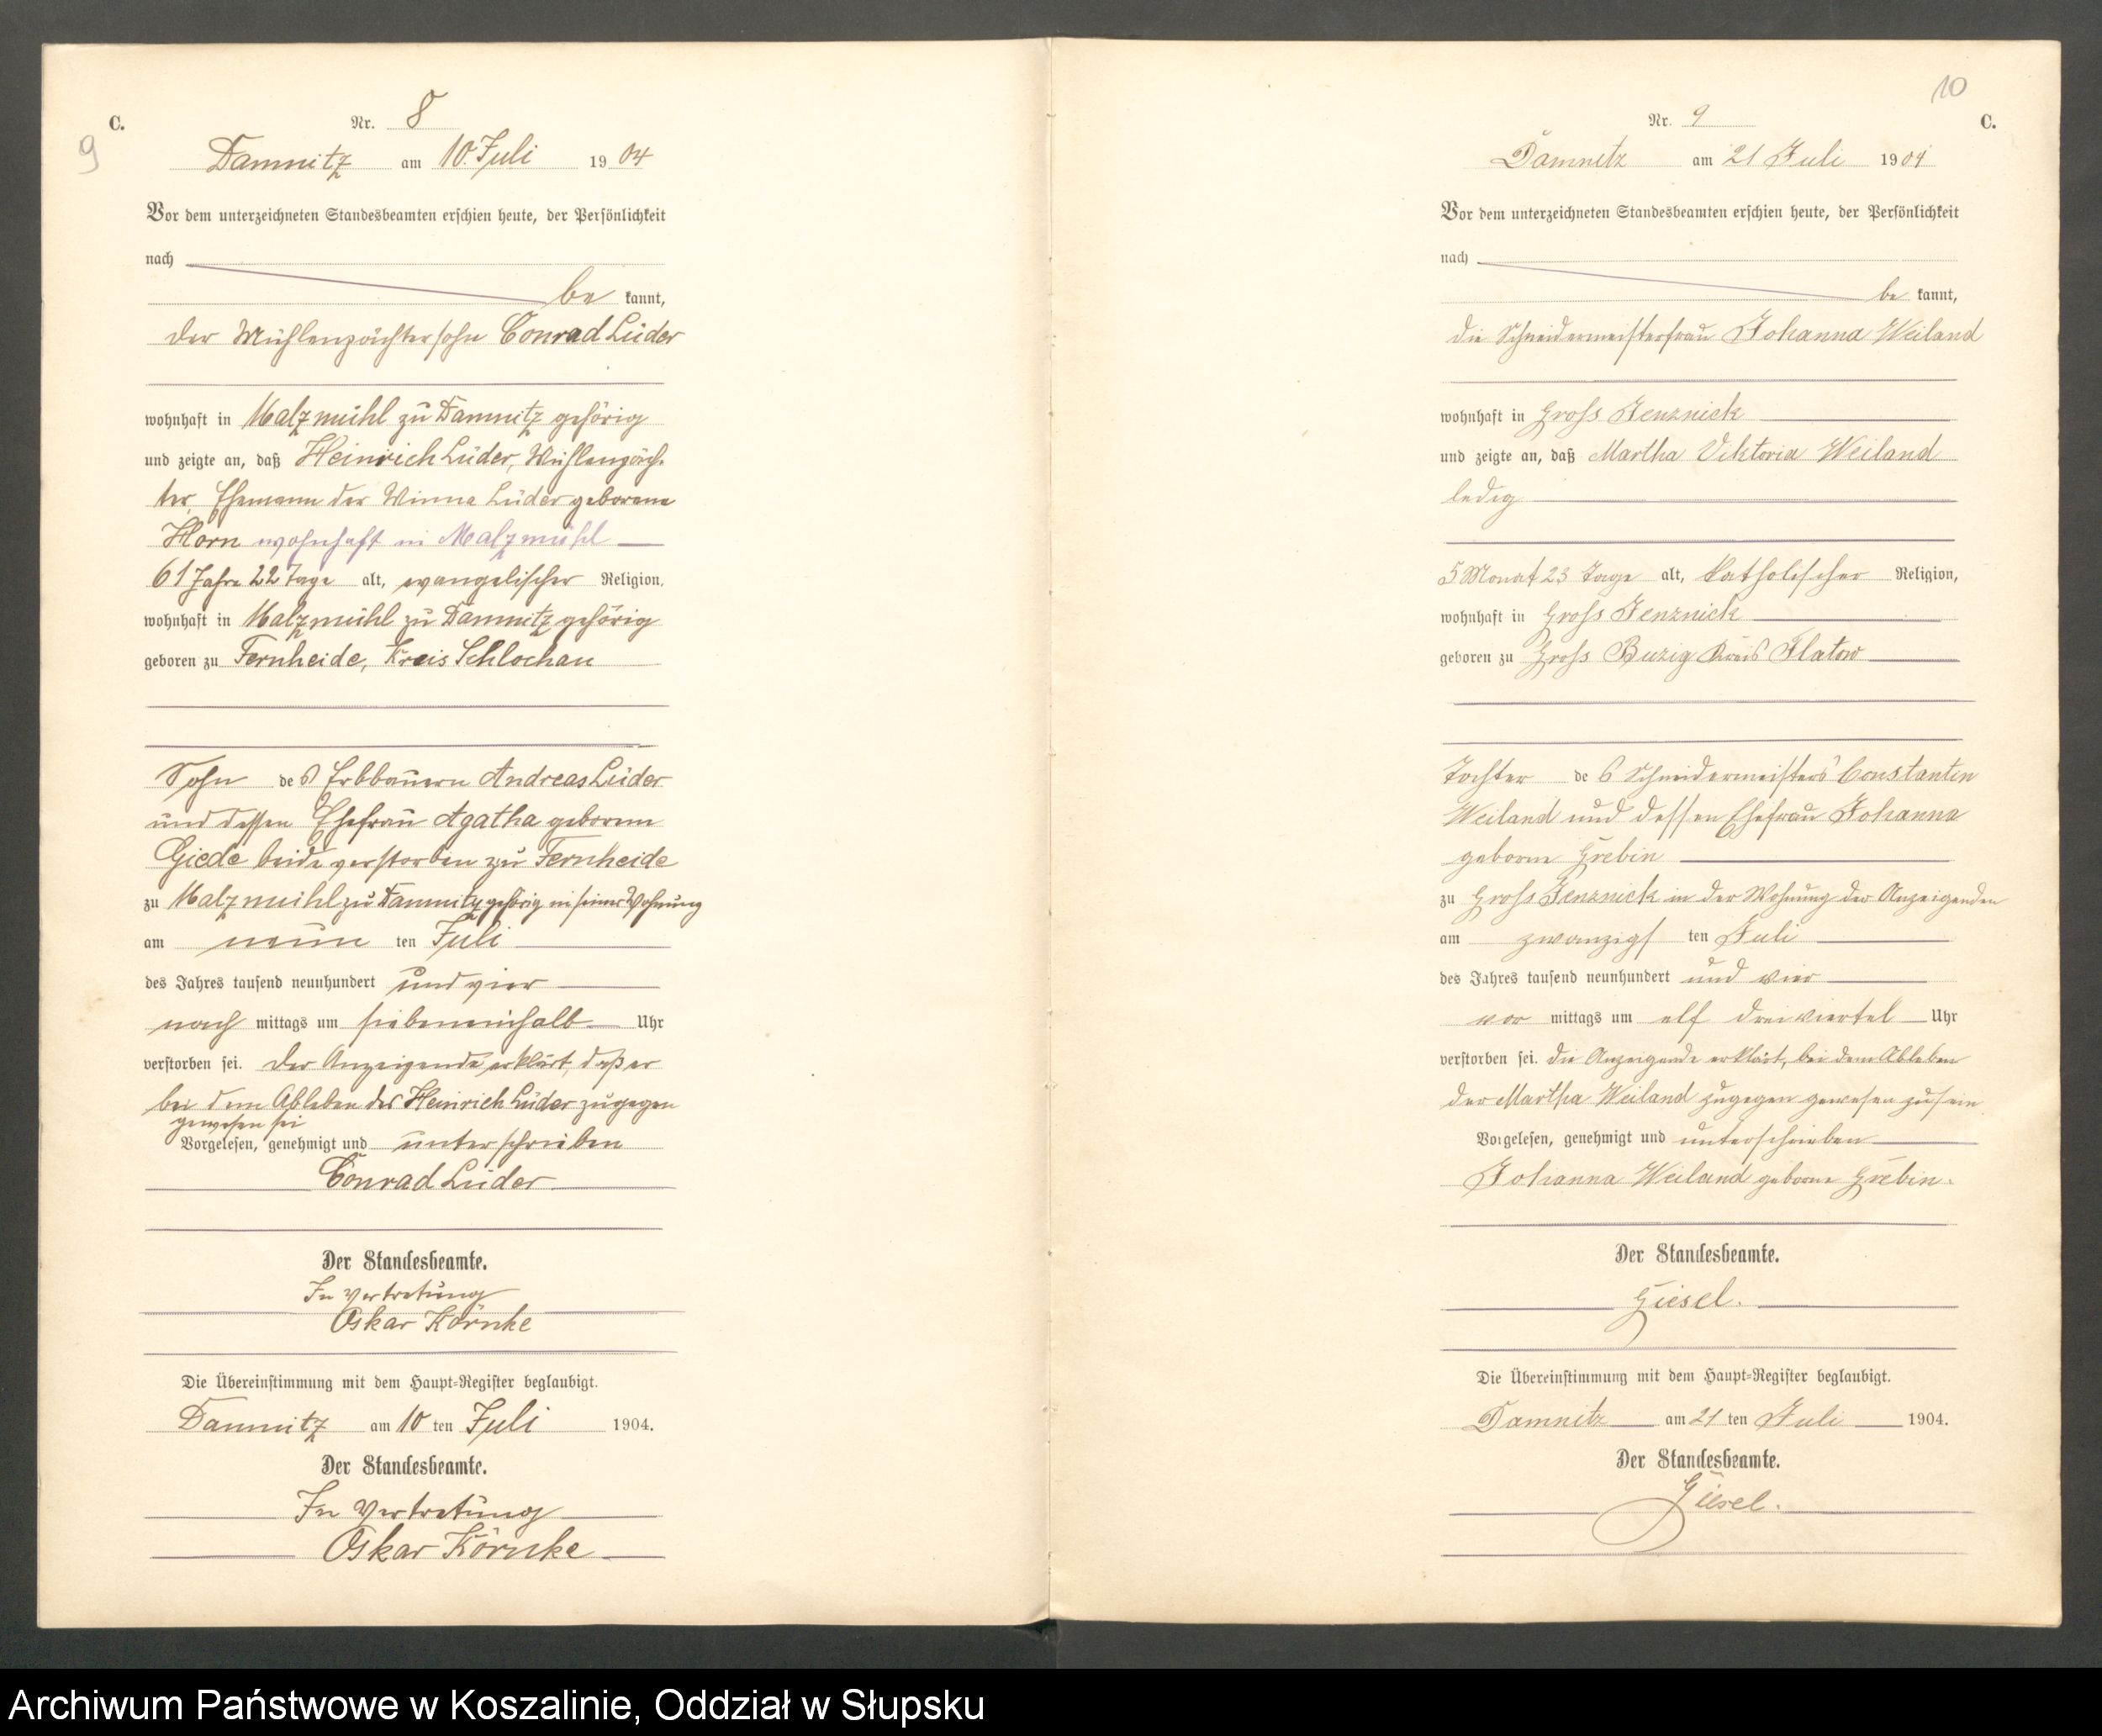 C.
9
Nr. 8
Damnitz am 10. Juli 1904
Vor dem unterzeichneten Standesbeamten erschien heute, der Persönlichkeit
nach
be kannt,
der Mühlenpächtersohn Conrad Lüder
wohnhaft in Malzmühl zu Damnitz gehörig
und zeigte an, daß Heinrich Lüder, Mühlenpäch-
ter, Ehemann der Minna Lüder geborene
Horn wohnhaft in Malzmühl
61 Jahre 22 Tage alt, evangelischer Religion,
wohnhaft in Malzmühl zu Damnitz gehörig
geboren zu Fernheide, Kreis Schlochau
Sohn des Erbbauern Andreas Lüder
und dessen Ehefrau Agatha geborene
Giede beide verstorben zu Fernheide
zu Malzmühl zu Damnitz gehörig in seiner Wohnung
am neun ten Juli
des Jahres tausend neunhundert und vier
nach mittags um siebeneinhalb Uhr
verstorben sei. Der Anzeigende erklärt, daß er
bei dem Ableben des Heinrich Lüder zugegen
gewesen sei
Vorgelesen, genehmigt und unterschrieben
Conrad Lüder
Der Standesbeamte.
In Vertretung
Oskar Körnke
Die Übereinstimmung mit dem Haupt-Register beglaubigt.
Damnitz am 10 ten Juli 1904.
Der Standesbeamte.
In Vertretung
Oskar Körnke
10
Nr. 9
C.
Damnitz am 21 Juli 1904
Vor dem unterzeichneten Standesbeamten erschien heute, der Persönlichkeit
nach
be kannt,
die Schneidermeisterfrau Johanna Weiland
wohnhaft in Gross Jenznick
und zeigte an, daß Martha Viktoria Weiland
ledig
5 Monat 23 Tage alt, katholischer Religion,
wohnhaft in Gross Jenznick
geboren zu Gross Buzig Kreis Flatow
Tochter des Schneidermeisters Constantin
Weiland und dessen Ehefrau Johanna
geborne Grebin
zu Gross Jenznick in der Wohnung der Anzeigenden
am zwanzigs ten Juli
des Jahres tausend neunhundert und vier
vor mittags um elf dreiviertel Uhr
verstorben sei. die Anzeigende erklärt, bei dem Ableben
der Martha Weiland zugegen gewesen zu sein
Vorgelesen, genehmigt und unterschrieben
Johanna Weiland geborne Grebin.
Der Standesbeamte.
Giesel.
Die Übereinstimmung mit dem Haupt-Register beglaubigt.
Damnitz am 21 ten Juli 1904.
Der Standesbeamte.
Giesel.
Archiwum Państwowe w Koszalinie, Oddział w Słupsku